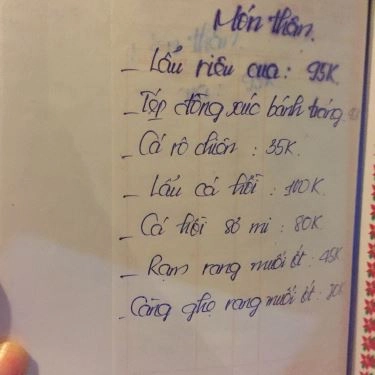 Món thêm.
- Lẩu riêu cua : 95K
- Tép đồng xúc bánh tráng
- Cá rô chiên : 35K.
- Lẩu cá hồi : 100K
- Cá hồi sỏ mi : 80K
- Rạm rang muối ớt : 45K
- Càng ghẹ rang muối ớt :